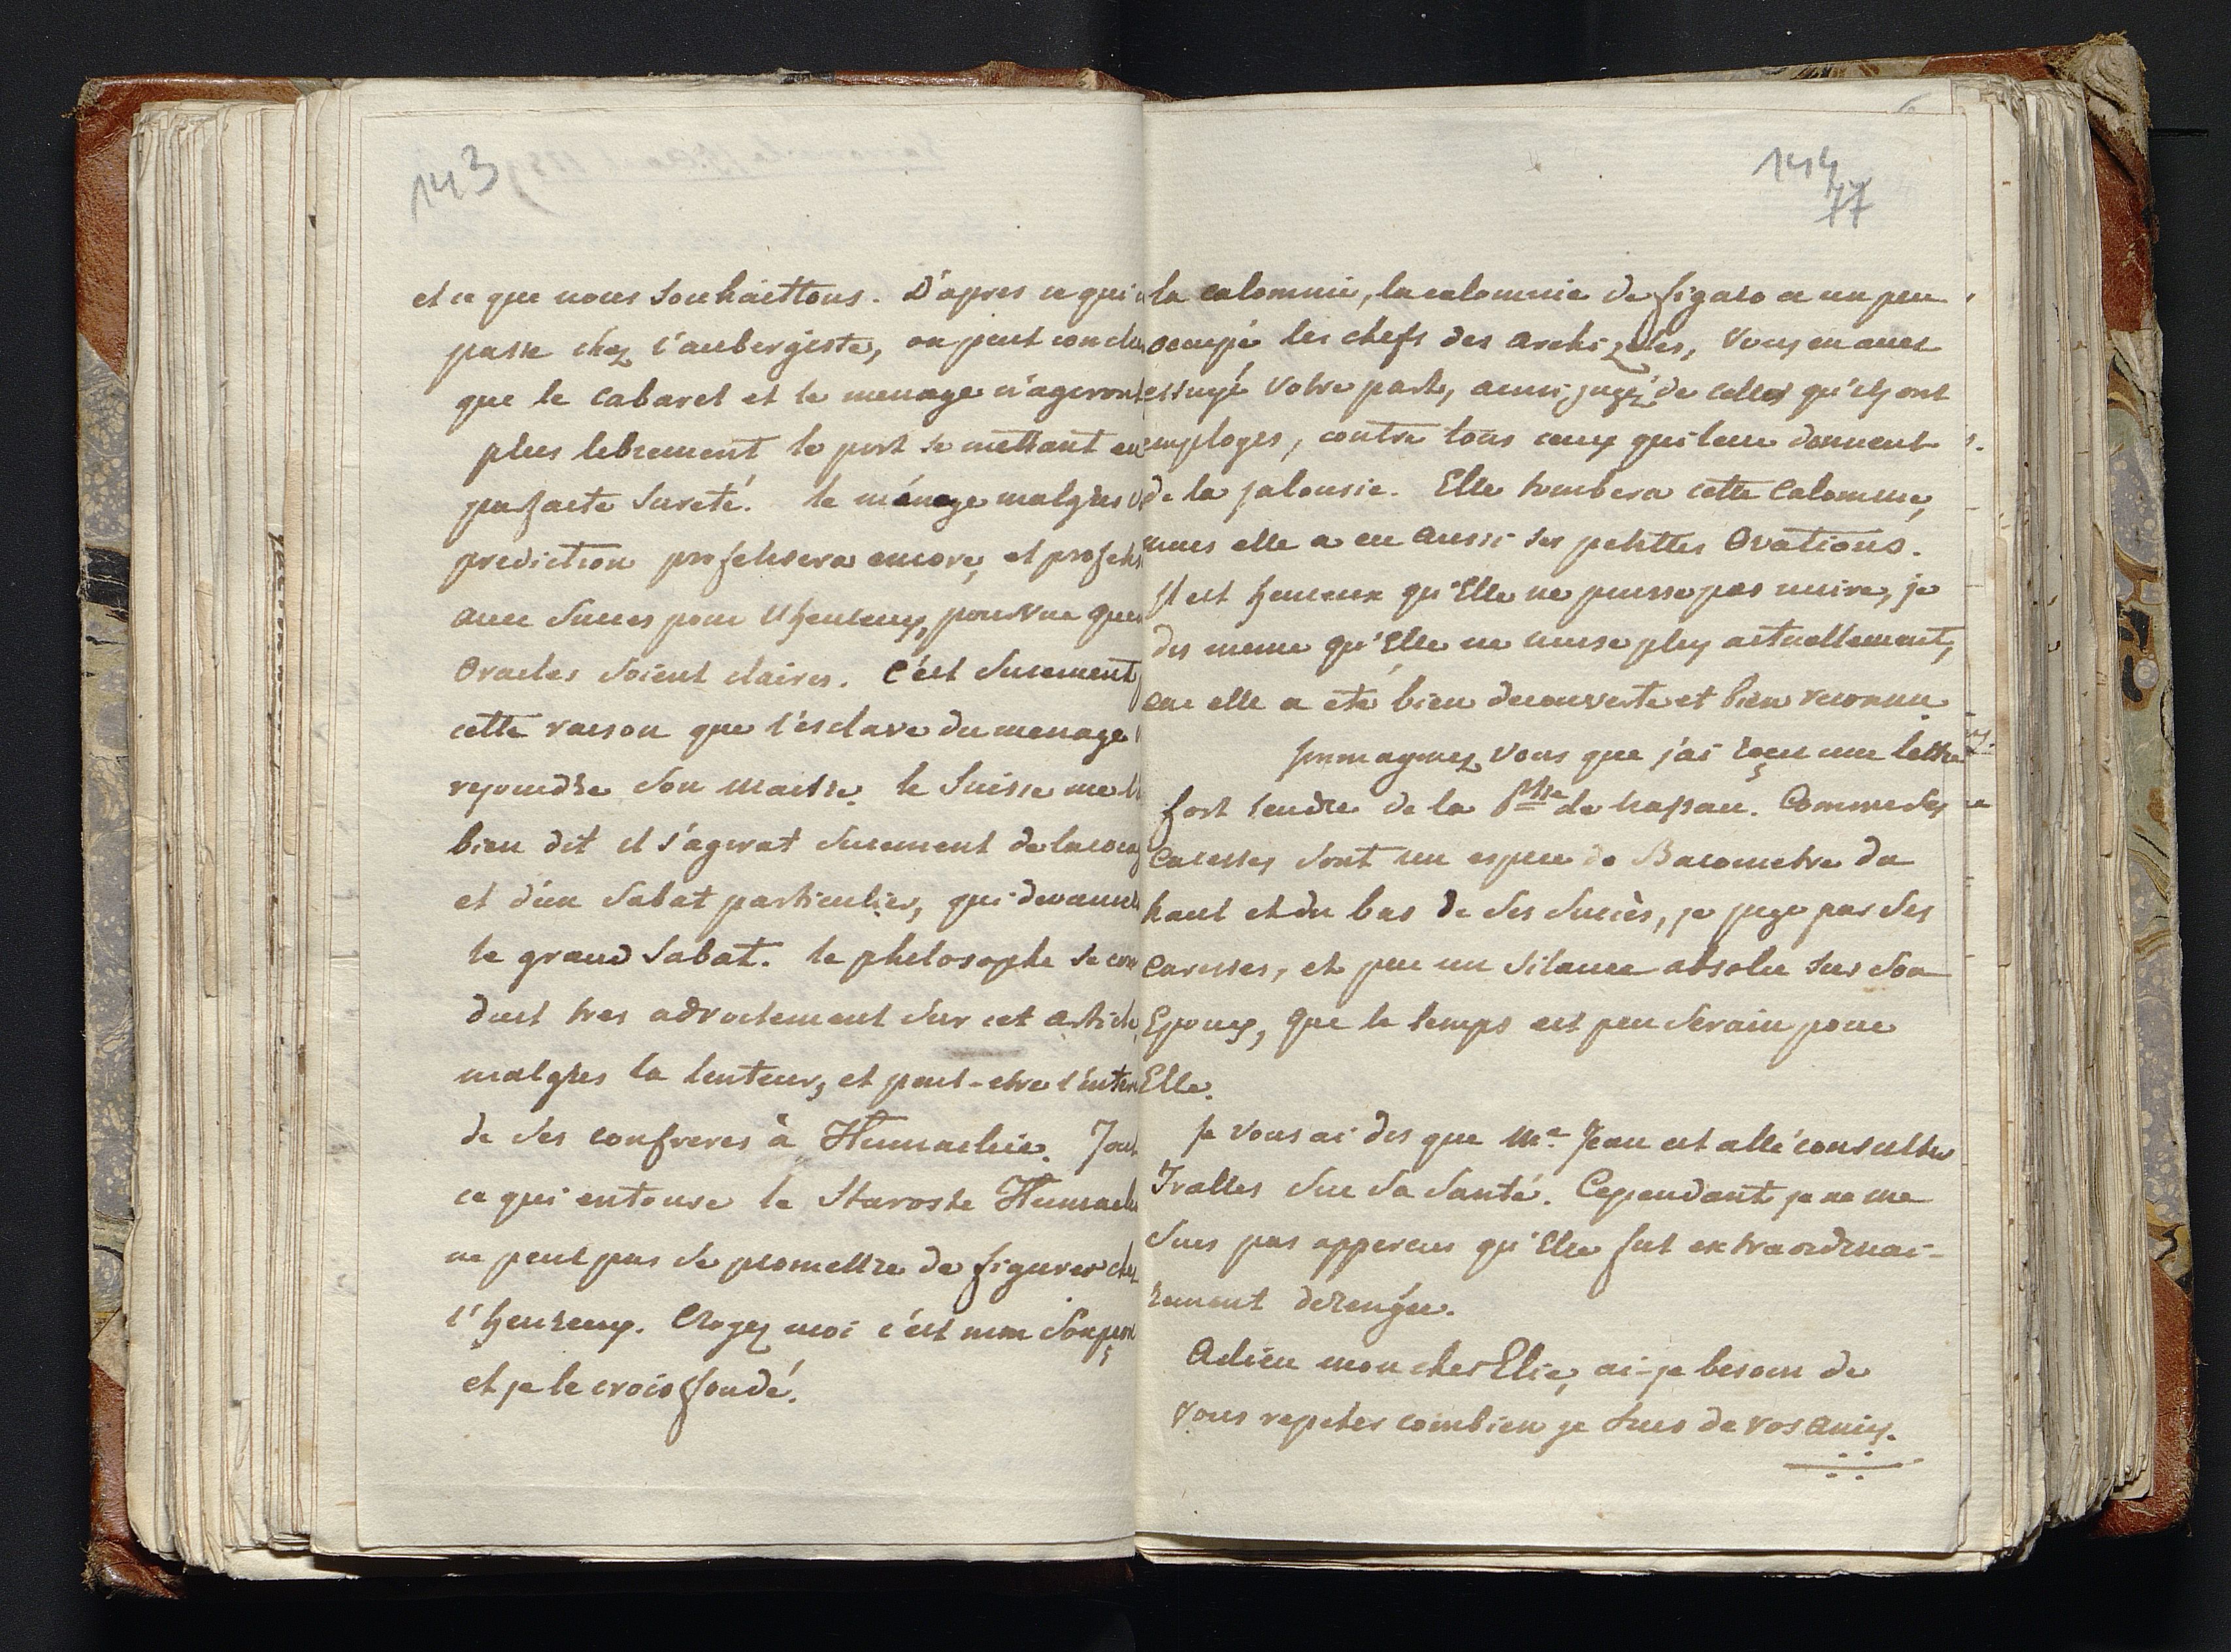 143
et ce que nous souhaittons. D'apres ce qui
passe chez l'aubergiste, on peut conclu
que le cabaret et le menage n'agiront
plus librement le port se mettant en
parfaite sureté. le ménage malgres
prediction profetisera encore, et profetis
avec succes pour l'heureux, pourvue que
oracles soient claires. C'est surement
cette raison que l'esclave du menage
rejoindre son maitre. le Suisse me l
bien dit il s'agirat surement de
et d'un sabat particulier, qui devance
le grand sabat. le philosophe se con
duit tres adroitement sur cet article,
malgres la lenteur, et peut-etre l'inten
de ses confreres à Humachie. Tout
ce qui entoure le Staroste Humach
ne peut pas se promettre de figurer chez
l'heureux. Croyez moi c'est mon soupçon
et je le crois fondé.
144
77
la calomnie, la calomnie de figaro a un peu
occupé les chefs des archizelés, vous en avez
essuyé votre part, ainsi jugéz de celles qu'ils ont
employes, contre tous ceux qui leur donnent
de la jalousie. Elle tombera cette calomnie,
mais elle a eu aussi ses petittes ovations.
Il est heureux qu'Elle ne puisse pas nuire, je
dis meme qu'Elle ne nuise plus actuellement,
car elle a eté bien decouverte et bien reconnu
Immaginez vous que j'ai reçu une lettre
fort tendre de la Psse de Nassau. Comme ses
caresses sont une espece de Barometre du
haut et du bas de ses succès, je juge par ses
caresses, et par un silence absolu sur son
Epoux, que le temps est peu serain pour
Elle.
Je vous ai dis que Me Jean est allé consulter
Tralles sur sa santé. Cependant je ne me
suis pas apperçus qu'Elle fut extraordinai-
rement derengée.
Adieu mon cher Elie, ai-je besoin de
vous repeter combien je suis de vos amis.